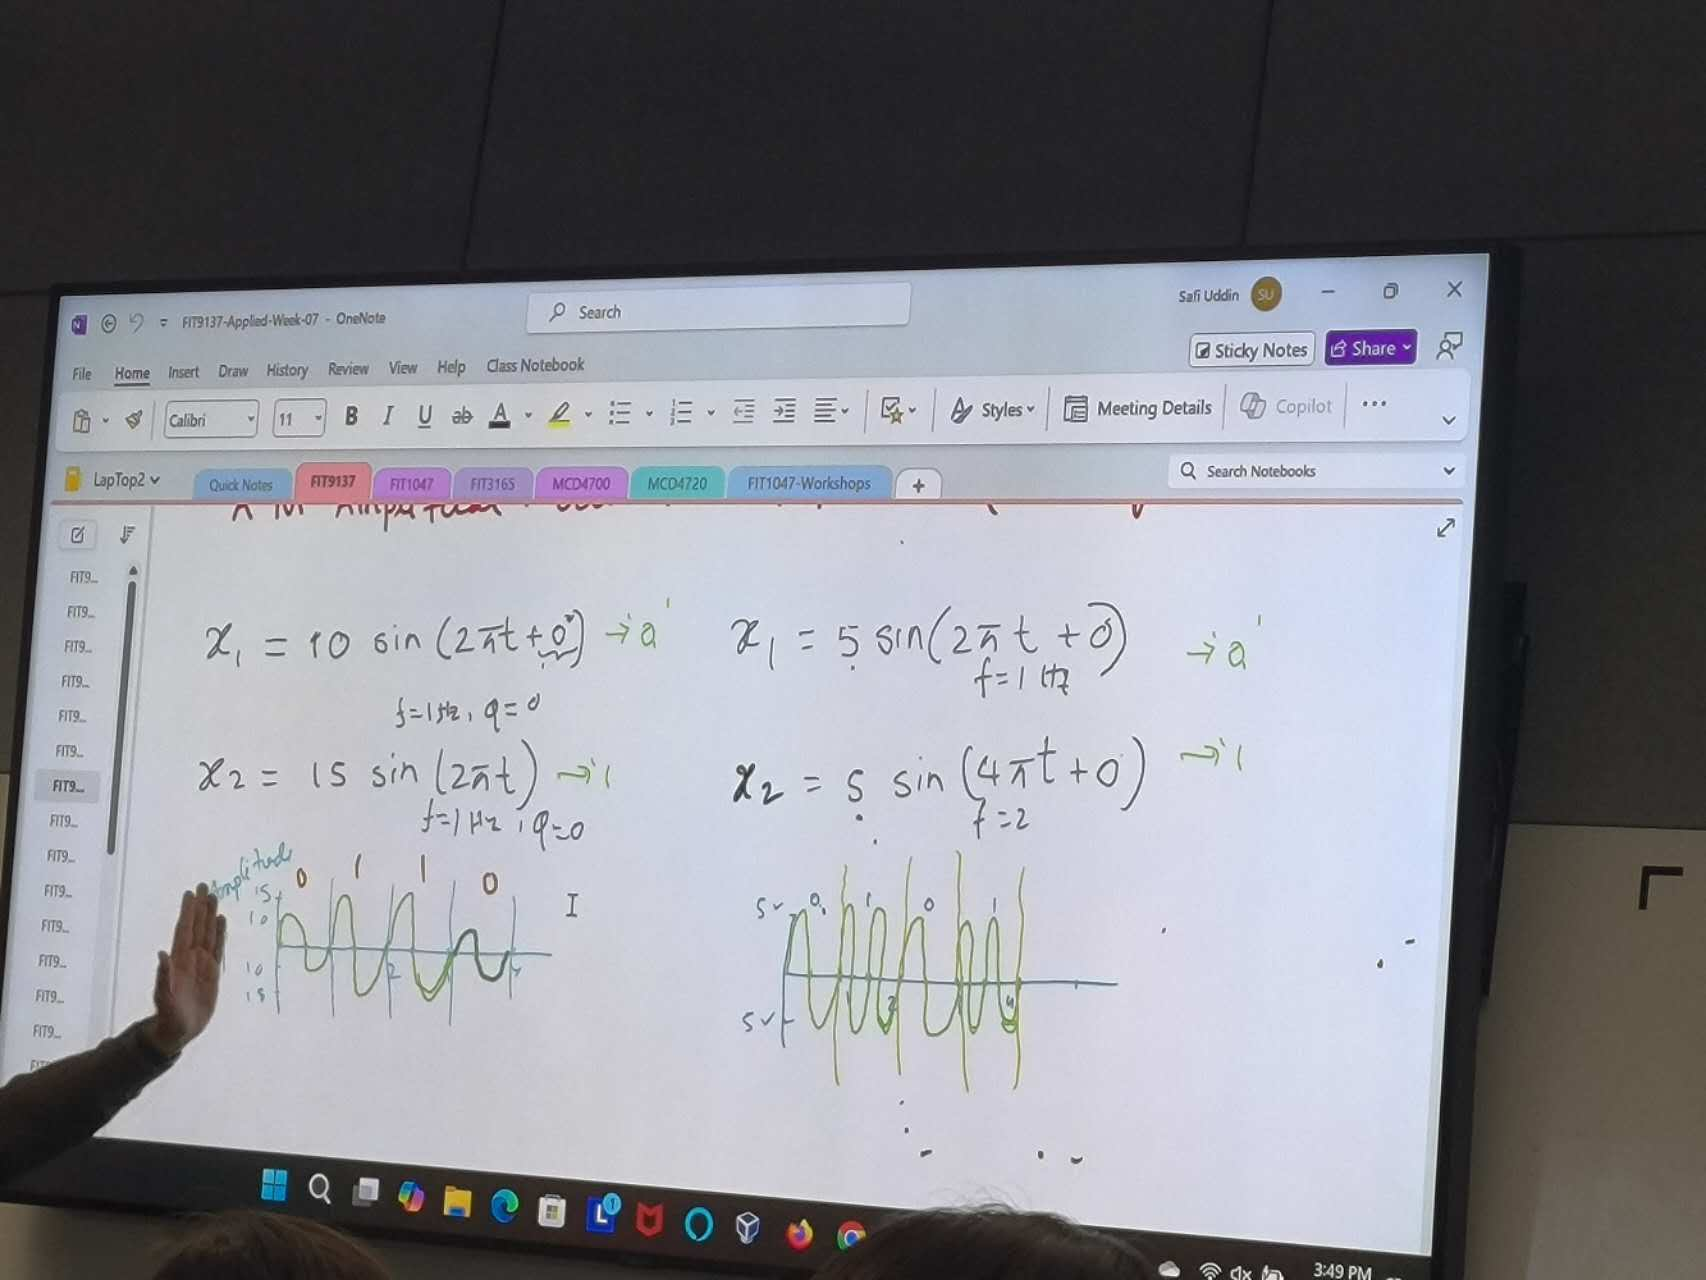 FIT9137-Applied-Week-07 - OneNote
Search
Safi Uddin
SU
Sticky Notes
Share
File Home Insert Draw History Review View Help Class Notebook
Calibri
11
B I U ab A
Styles
Meeting Details
Copilot
LapTop2
Quick Notes
FIT9137
FIT1047
FIT3165
MCD4700
MCD4720
FIT1047-Workshops
+
Search Notebooks
FIT9...
FIT9...
FIT9...
FIT9...
FIT9...
FIT9...
FIT9...
FIT9...
FIT9...
FIT9...
FIT9...
FIT9...
FIT9...
FIT9...
x₁ = 10 sin (2πt+0°) → '0'
f=1Hz, φ=0
x₂ = 15 sin (2πt) → '1'
f=1Hz, φ=0
Amplitude
0 1 1 0
15
10
10
15
2
I
x₁ = 5 sin(2πt + 0) → '0'
f=1 Hz
x₂ = 5 sin (4πt + 0) → '1'
f=2
0 1 0 1
5v
5v
2
4
3:49 PM